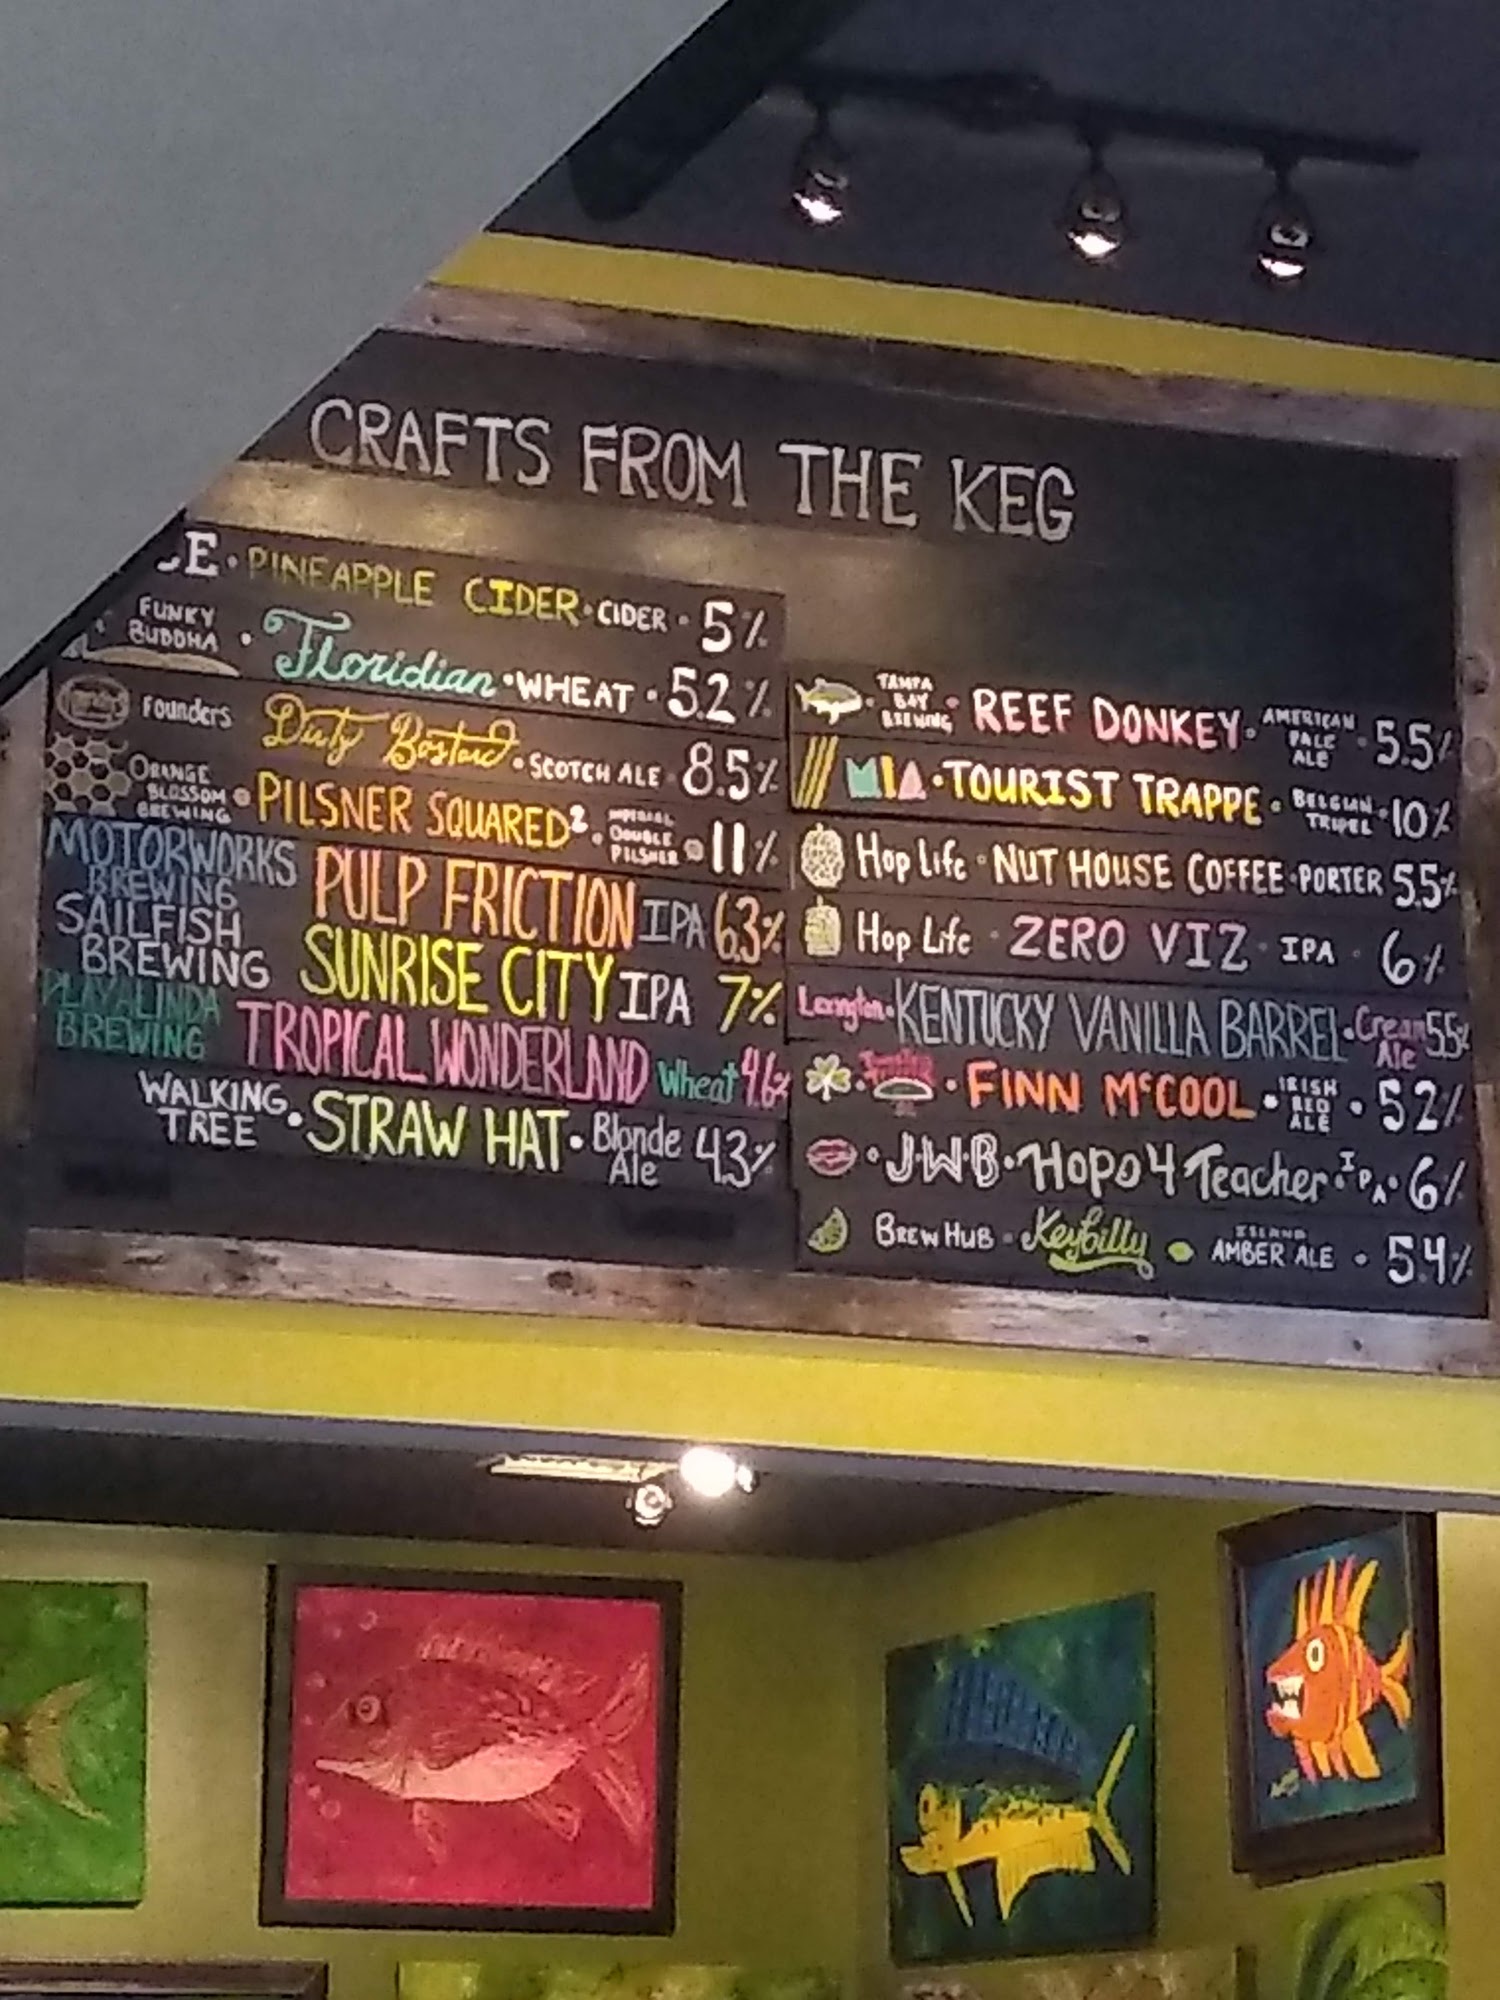 CRAFTS FROM THE KEG
E · PINEAPPLE CIDER · CIDER · 5%
FUNKY BUDDHA · Floridian · WHEAT · 5.2%
Founders Dirty Bastard · SCOTCH ALE · 8.5%
ORANGE BLOSSOM BREWING · PILSNER SQUARED² · IMPERIAL DOUBLE PILSNER · 11%
MOTORWORKS BREWING PULP FRICTION IPA 6.3%
SAILFISH BREWING SUNRISE CITY IPA 7%
PLAYALINDA BREWING TROPICAL WONDERLAND Wheat 4.6%
WALKING TREE · STRAW HAT · Blonde Ale 4.3%
TAMPA BAY BREWING · REEF DONKEY · AMERICAN PALE ALE · 5.5%
MIA · TOURIST TRAPPE · BELGIAN TRIPEL · 10%
Hop Life · NUT HOUSE COFFEE · PORTER 5.5%
Hop Life · ZERO VIZ · IPA · 6%
Lexington · KENTUCKY VANILLA BARREL · Cream Ale 5.5%
· FINN McCOOL · IRISH RED ALE · 5.2%
· J.W.B · Hops 4 Teacher · IPA · 6%
BREW HUB · Keybilly · ISLAND AMBER ALE · 5.4%